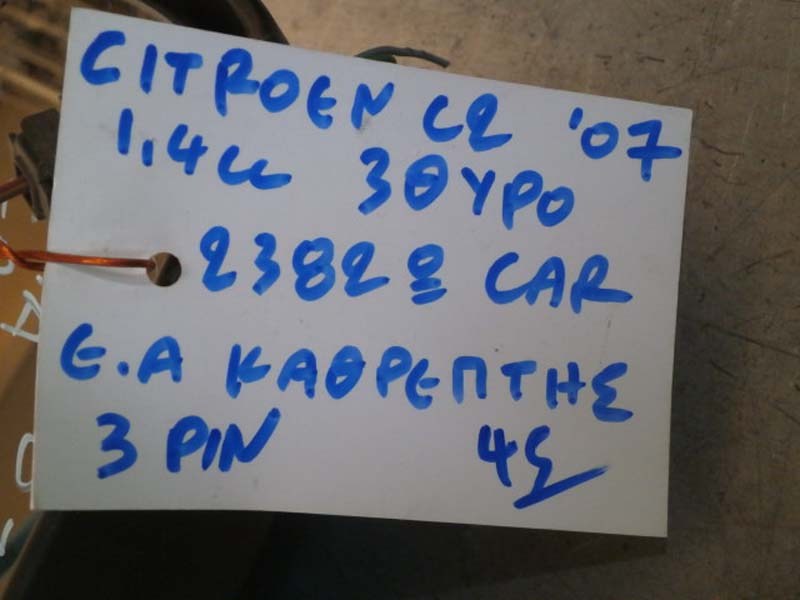 CITROEN C2 '07
1,4cc 3ΘΥΡΟ
2382º CAR
Ε.Α ΚΑΘΡΕΠΤΗΣ
3 PIN